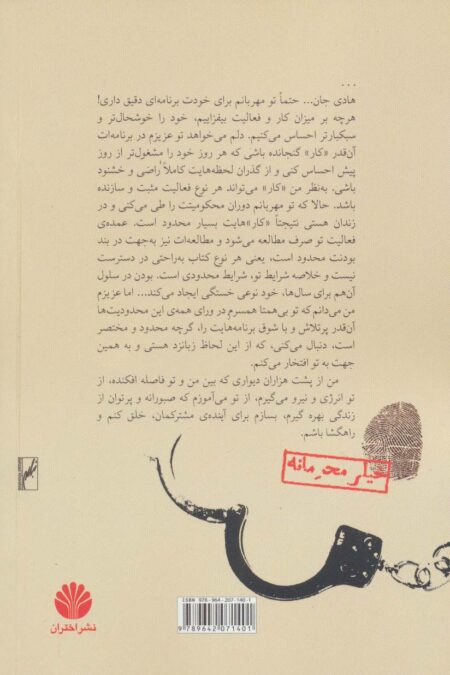 ...
هادی جان... حتماً تو مهربانم برای خودت برنامه‌ای دقیق داری!
هرچه بر میزان کار و فعالیت بیفزاییم، خود را خوشحال‌تر و
سبکبارتر احساس می‌کنیم. دلم می‌خواهد تو عزیزم در برنامه‌ات
آن‌قدر «کار» گنجانده باشی که هر روز خود را مشغول‌تر از روز
پیش احساس کنی و از گذران لحظه‌هایت کاملاً راضی و خشنود
باشی. به‌نظر من «کار» می‌تواند هر نوع فعالیت مثبت و سازنده
باشد. حالا که تو مهربانم دوران محکومیتت را طی می‌کنی و در
زندان هستی نتیجتاً «کار»هایت بسیار محدود است. عمده‌ی
فعالیت تو صرف مطالعه می‌شود و مطالعه‌ات نیز به‌جهت در بند
بودنت محدود است، یعنی هر نوع کتاب به‌راحتی در دسترست
نیست و خلاصه شرایط تو، شرایط محدودی است. بودن در سلول
آن‌هم برای سال‌ها، خود نوعی خستگی ایجاد می‌کند... اما عزیزم
من می‌دانم که تو بی‌همتا همسرم در ورای همه‌ی این محدودیت‌ها
آن‌قدر پرتلاش و با شوق برنامه‌هایت را، گرچه محدود و مختصر
است، دنبال می‌کنی، که از این لحاظ زبانزد هستی و به همین
جهت به تو افتخار می‌کنم.
من از پشت هزاران دیواری که بین من و تو فاصله افکنده، از
تو انرژی و نیرو می‌گیرم، از تو می‌آموزم که صبورانه و پرتوان از
زندگی بهره گیرم، بسازم برای آینده‌ی مشترکمان، خلق کنم و
راهگشا باشم.
خیلی محرمانه
نشر اختران
ISBN 978-964-207-140-1
9 789642 071401